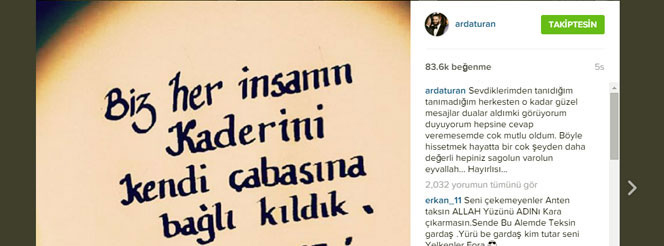 Biz her insanın
Kaderini
kendi çabasına
bağlı kıldık.
ardaturan
TAKİPTESİN
83.6k beğenme
5s
ardaturan Sevdiklerimden tanıdığım
tanımadığım herkesten o kadar güzel
mesajlar dualar aldımki görüyorum
duyuyorum hepsine cevap
veremesemde cok mutlu oldum. Böyle
hissetmek hayatta bir cok şeyden daha
değerli hepiniz sagolun varolun
eyvallah... Hayırlısı...
2,032 yorumun tümünü gör
erkan_11 Seni çekemeyenler Anten
taksın ALLAH Yüzünü ADINı Kara
çıkarmasın.Sende Bu Alemde Teksin
gardaş .Yürü be gardaş kim tutar seni
Yelkenler Fora